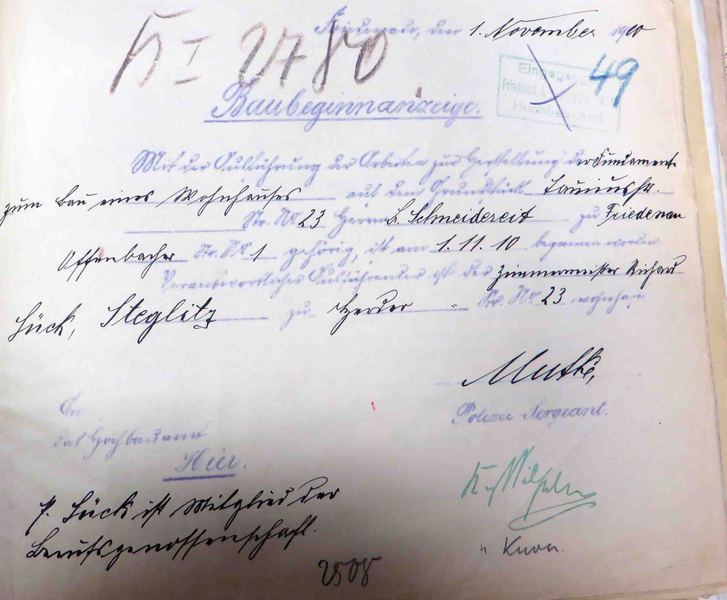 K I 2780
Friedenau, den 1. November 1910
49
Eingegangen
Hochbauamt
Baubeginnanzeige.
Mit der Ausführung der Arbeiten zur Herstellung der Fundament
zum Bau eines Wohnhauses auf dem Grundstück Taunusstr.
Str. Nr 23 Herrn B. Schneidereit zu Friedenau
Offenbacher Str. Nr. 1 gehörig, ist am 1.11.10 begonnen worden
Verantwortlicher Ausführender ist der Zimmermeister Richard
Lück, Steglitz zu Herder - Str. Nr 23 wohnhaft
Muthe,
Polizei Sergeant.
An
das Hochbauamt
Hier.
p. Lück ist Mitglied der
Berufsgenossenschaft.
2508